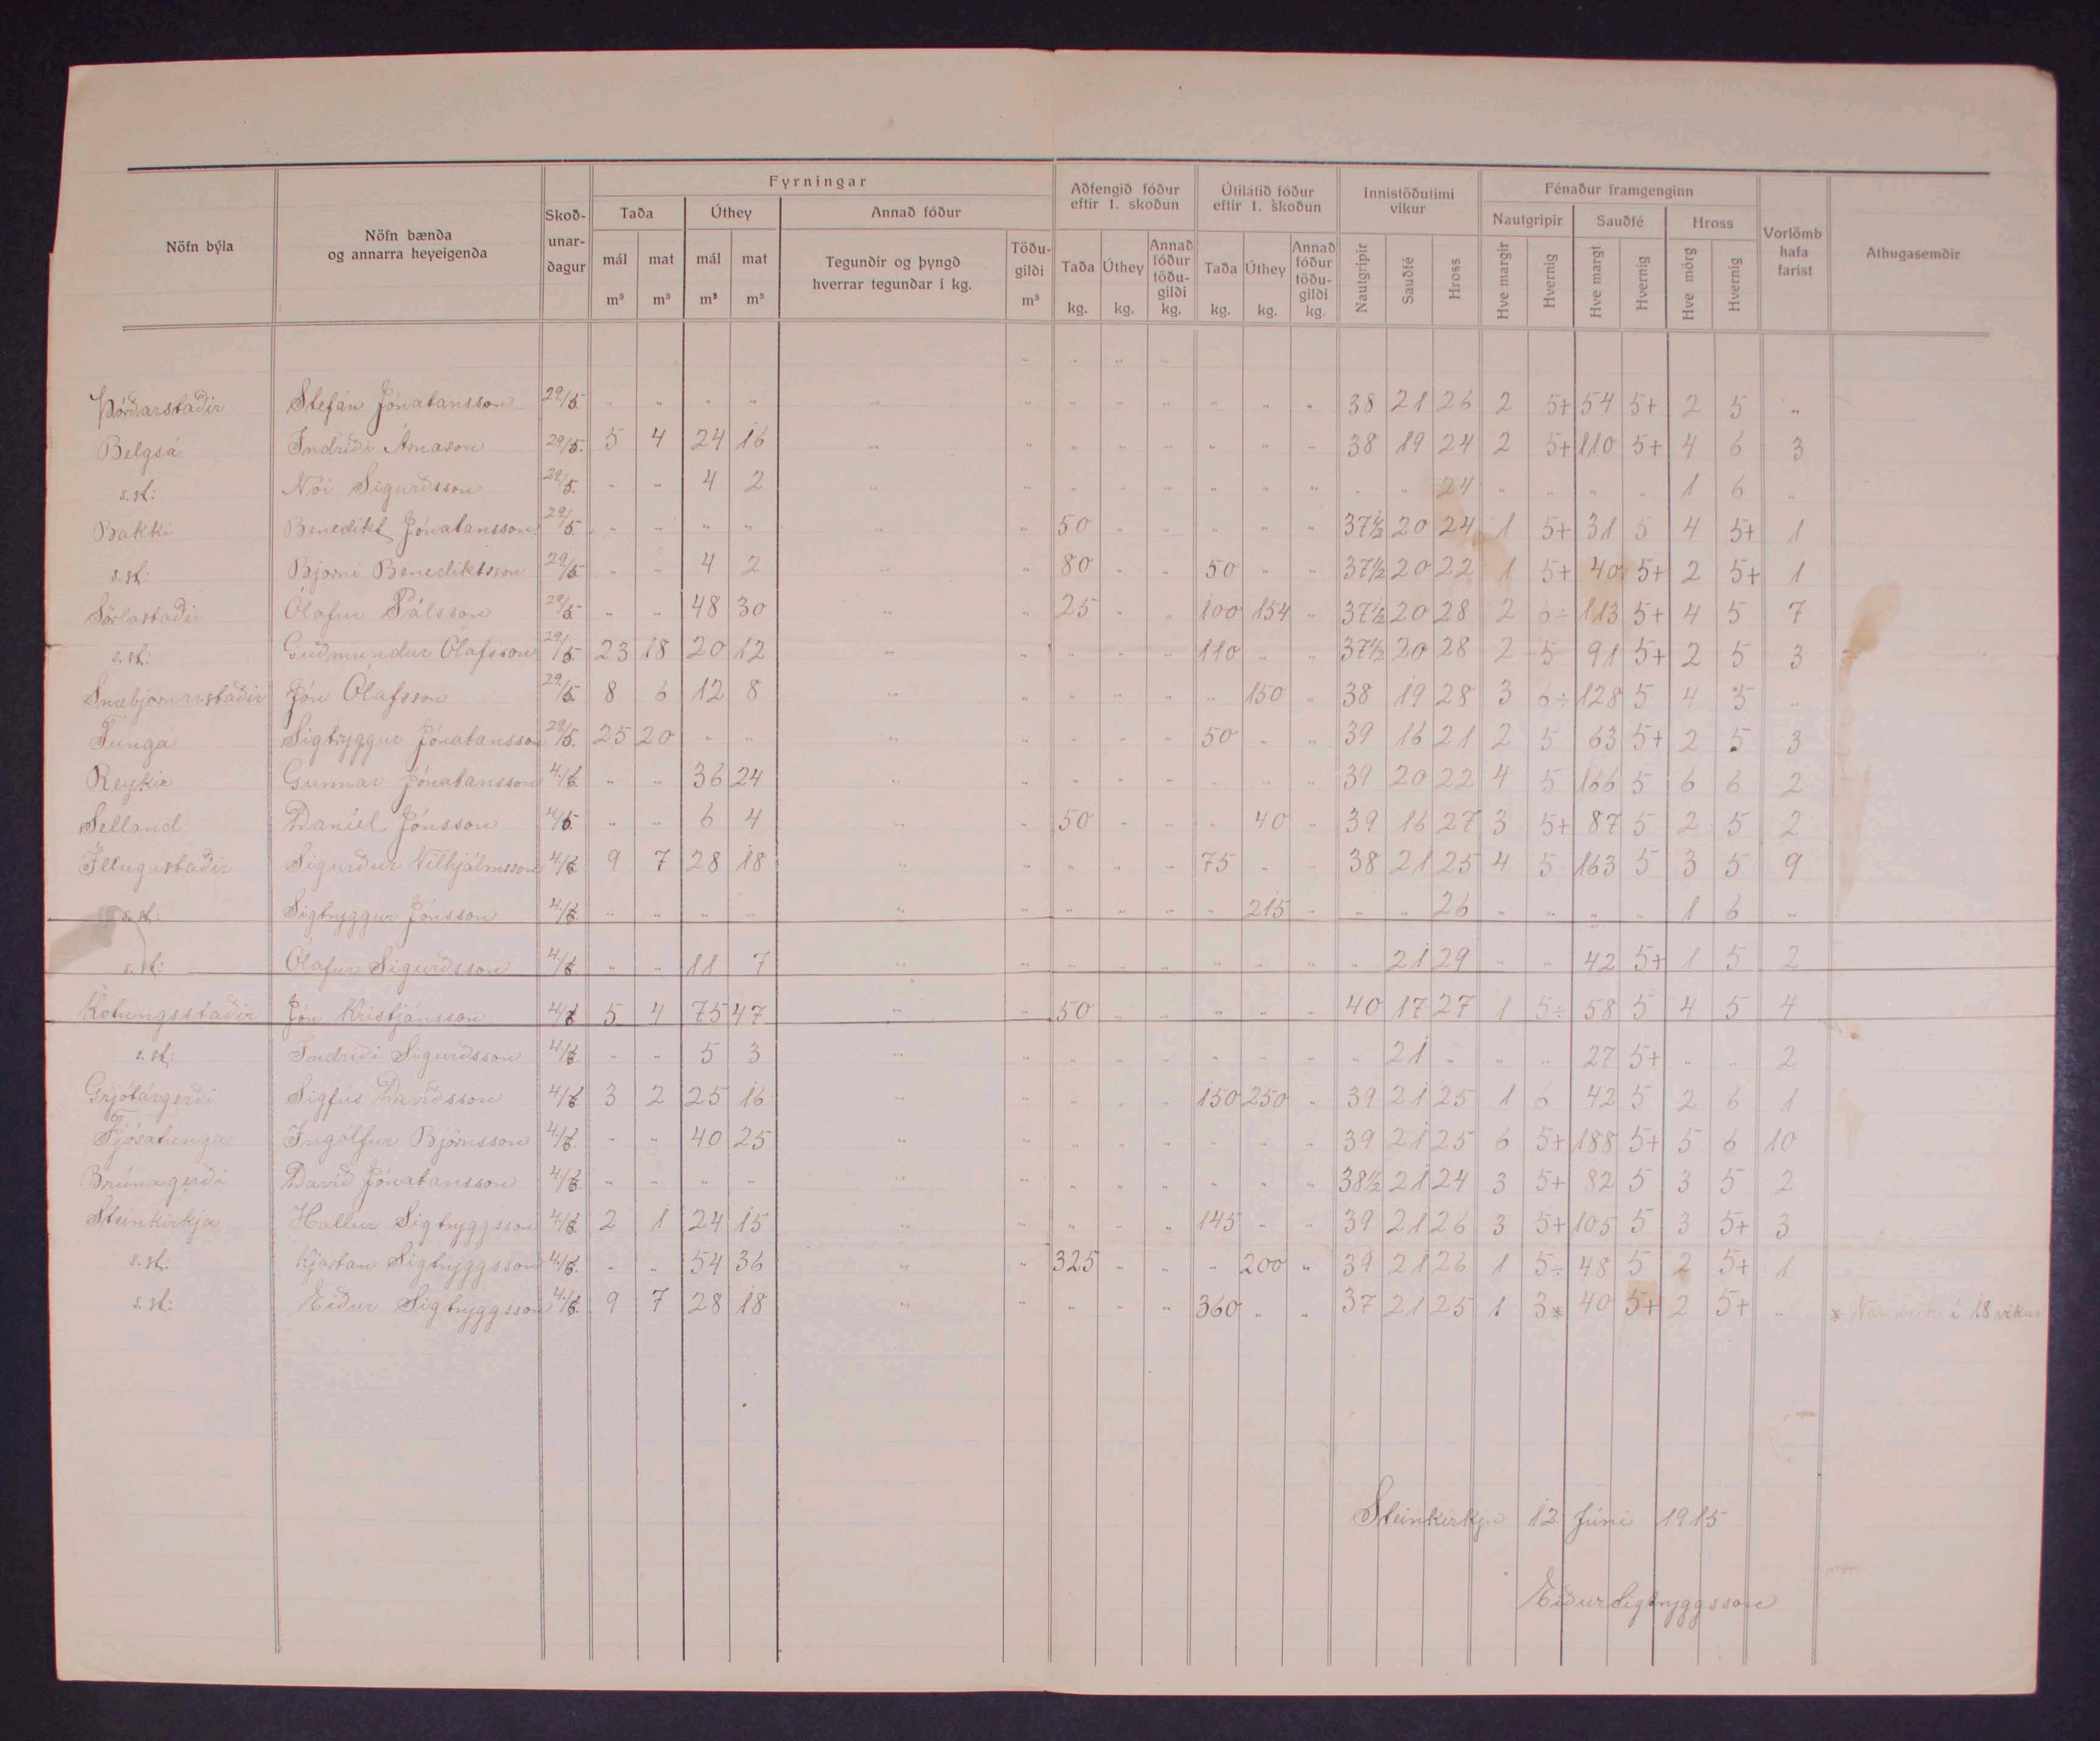 Nöfn býla
Nöfn bænda og annarra heyeigenda
Skoð-unar-dagur
Fyrningar
Taða
Úthey
Annað fóður
mál m³
mat m³
mál m³
mat m³
Tegundir og þyngd hverrar tegundar í kg.
Töðu-gildi m³
Aðfengið fóður eftir 1. skoðun
Taða kg.
Úthey kg.
Annað fóður töðu-gildi kg.
Útilátið fóður eftir 1. skoðun
Taða kg.
Úthey kg.
Annað fóður töðu-gildi kg.
Innistöðutími vikur
Nautgripir
Sauðfé
Hross
Fénaður framgenginn
Nautgripir
Sauðfé
Hross
Hve margir
Hvernig
Hve margt
Hvernig
Hve mörg
Hvernig
Vorlömb hafa farist
Athugasemdir
Þórðarstaðir Stefán Jónatansson 29/5. " " " " " " " " " " " " 38 21 26 2 5+ 54 5+ 2 5 "
Belgsá Indriði Árnason 29/5. 5 4 24 16 " " " " " " " " 38 19 24 2 5+ 110 5+ 4 6 3
s.st: Nói Sigurðsson 29/5. " " 4 2 " " " " " " " " " " 24 " " " " 1 6 "
Bakki Benedikt Jónatansson 29/5. " " " " " " 50 " " " " " 37½ 20 24 1 5+ 31 5 4 5+ 1
s.st: Bjarni Benediktsson 29/5. " " 4 2 " " 80 " " 50 " " 37½ 20 22 1 5+ 40 5+ 2 5+ 1
Sörlastaðir Ólafur Pálsson 29/5. " " 48 30 " " 25 " " 100 154 " 37½ 20 28 2 6÷ 113 5+ 4 5 7
s.st: Guðmundur Ólafsson 29/5. 23 18 20 12 " " " " " 110 " " 37½ 20 28 2 5 91 5+ 2 5 3
Snæbjarnarstaðir Jón Ólafsson 29/5. 8 6 12 8 " " " " " " 150 " 38 19 28 3 6÷ 128 5 4 5 "
Tunga Sigtryggur Jónatansson 29/5. 25 20 " " " " " " " 50 " " 39 16 21 2 5 63 5+ 2 5 3
Reykir Gunnar Jónatansson 4/6. " " 36 24 " " " " " " " " 39 20 22 4 5 166 5 6 6 2
Selland Daníel Jónsson 4/6. " " 6 4 " " 50 " " " 40 " 39 16 27 3 5+ 87 5 2 5 2
Illugastaðir Sigurður Vilhjálmsson 4/6. 9 7 28 18 " " " " " 75 " " 38 21 25 4 5 163 5 3 5 9
s.st: Sigtryggur Jónsson 4/6. " " " " " " " " " " 215 " " " 26 " " " " 1 6 "
s.st: Ólafur Sigurðsson 4/6. " " 11 7 " " " " " " " " " 21 29 " " 42 5+ 1 5 2
Kotungsstaðir Jón Kristjánsson 4/6. 5 4 75 47 " " 50 " " " " " 40 17 27 1 5÷ 58 5 4 5 4
s.st: Indriði Sigurðsson 4/6. " " 5 3 " " " " " " " " " 21 " " " 27 5+ " " 2
Grjótárgerði Sigfús Davíðsson 4/6. 3 2 25 16 " " " " " 150 250 " 39 21 25 1 6 42 5 2 6 1
Fjósatunga Ingólfur Björnsson 4/6. " " 40 25 " " " " " " " " 39 21 25 6 5+ 188 5+ 5 6 10
Brúnagerði Davíð Jónatansson 4/6. " " " " " " " " " " " " 38½ 21 24 3 5+ 82 5 3 5 2
Steinkirkja Hallur Sigtryggsson 4/6. 2 1 24 15 " " " " " 145 " " 39 21 26 3 5+ 105 5 3 5+ 3
s.st: Kjartan Sigtryggsson 4/6. " " 54 36 " " 325 " " " 200 " 39 21 26 1 5÷ 48 5 2 5+ 1
s.st: Eiður Sigtryggsson 4/6. 9 7 28 18 " " " " " 360 " " 37 21 25 1 3* 40 5+ 2 5+ " * Var veik í 18 vikur
Steinkirkju 12 Júni 1915
Eiður Sigtryggsson